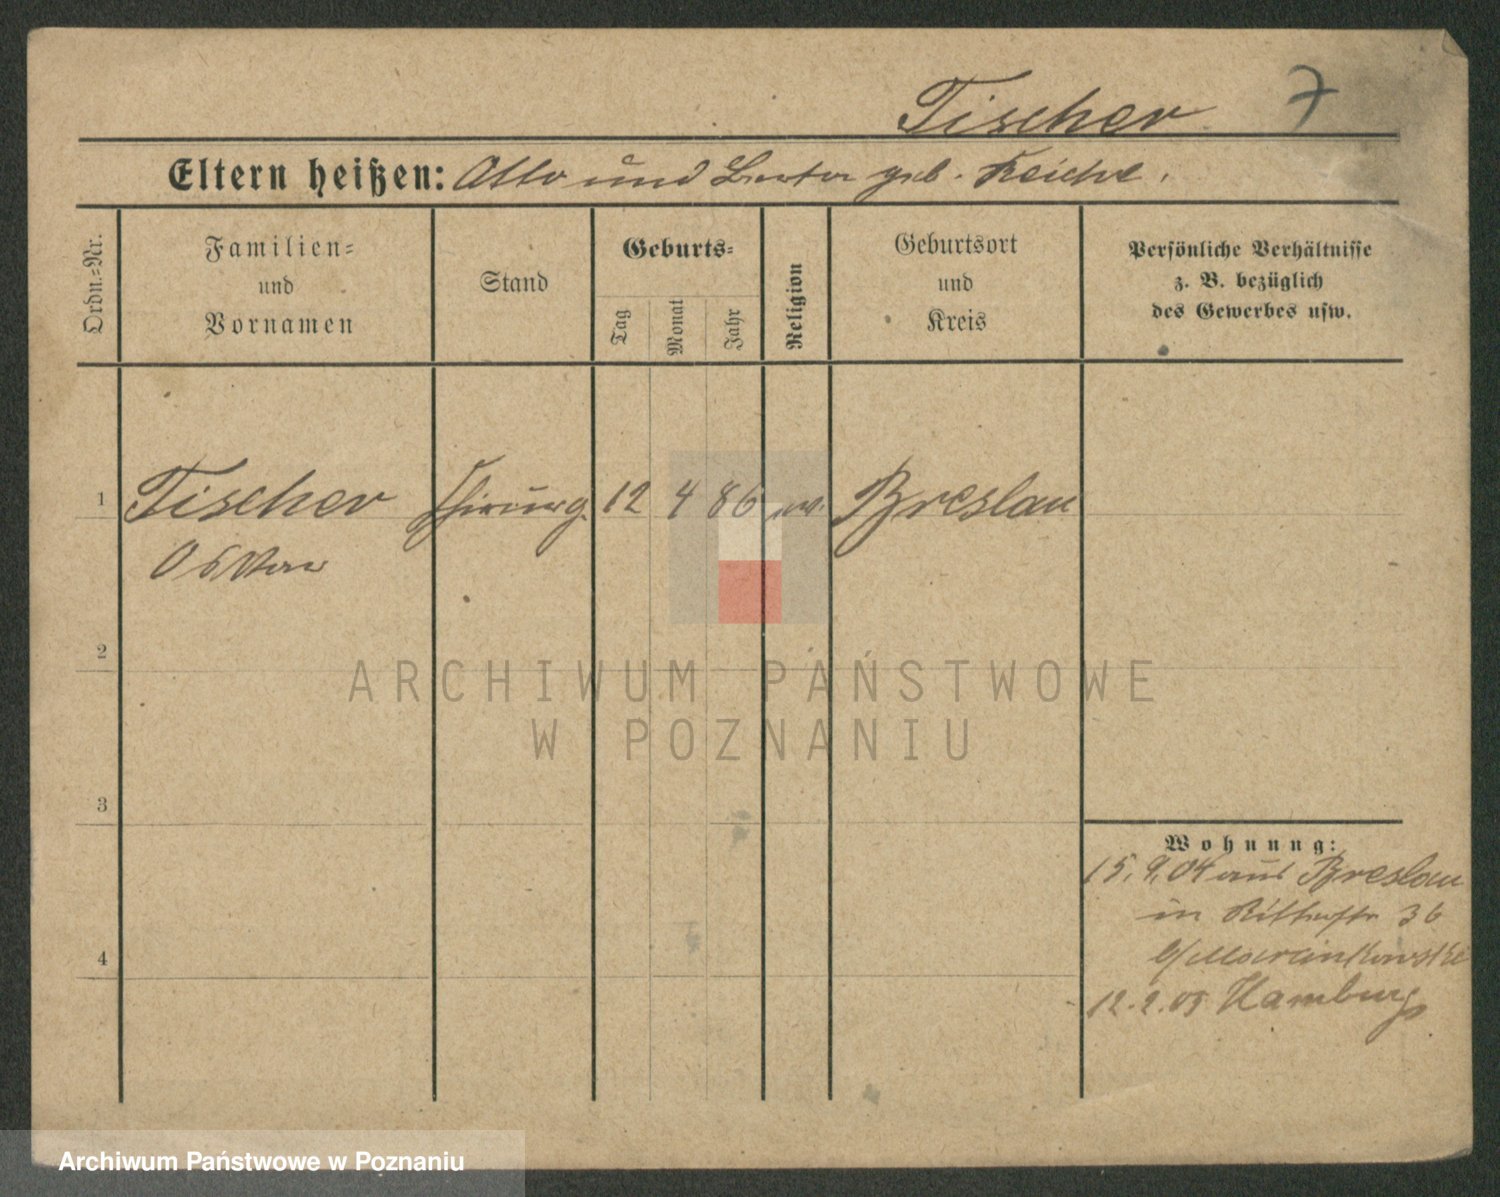 Tischer 7
Eltern heißen: Otto und geb. Reiche.
Ordn.-Nr.
Familien-
und
Vornamen
Stand
Geburts-
Tag
Monat
Jahr
Religion
Geburtsort
und
Kreis
Persönliche Verhältnisse
z. B. bezüglich
des Gewerbes usw.
1 Tischer Chirurg 12 4 86 ev. Breslau
2
3
4
Wohnung:
15. 9. 04 aus Breslau
in Ritterstr 36
b/Marcinkowski
12. 2. 05 Hamburg
ARCHIWUM PAŃSTWOWE
W POZNANIU
Archiwum Państwowe w Poznaniu